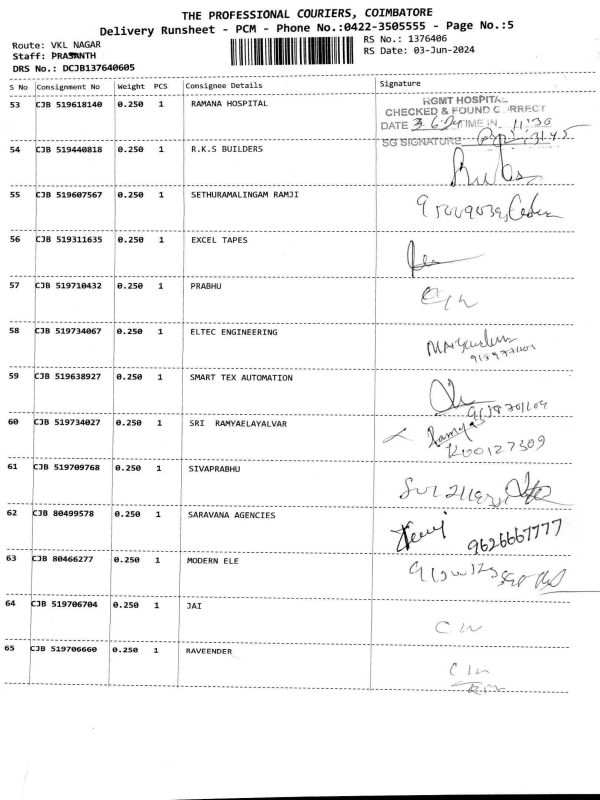 THE PROFESSIONAL COURIERS, COIMBATORE
Delivery Runsheet - PCM - Phone No.:0422-3505555 - Page No.:5
Route: VKL NAGAR
Staff: PRASANTH
DRS No.: DCJB137640605
RS No.: 1376406
RS Date: 03-Jun-2024
S No Consignment No Weight PCS Consignee Details Signature
53 CJB 519618140 0.250 1 RAMANA HOSPITAL
RGMT HOSPITAL
CHECKED & FOUND CORRECT
DATE 3.6.24 TIME IN 11:30
SG SIGNATURE
54 CJB 519440818 0.250 1 R.K.S BUILDERS
55 CJB 519607567 0.250 1 SETHURAMALINGAM RAMJI
56 CJB 519311635 0.250 1 EXCEL TAPES
57 CJB 519710432 0.250 1 PRABHU
58 CJB 519734067 0.250 1 ELTEC ENGINEERING
59 CJB 519638927 0.250 1 SMART TEX AUTOMATION
60 CJB 519734027 0.250 1 SRI RAMYAELAYALVAR
Ramya
61 CJB 519709768 0.250 1 SIVAPRABHU
62 CJB 80499578 0.250 1 SARAVANA AGENCIES
9626667777
63 CJB 80466277 0.250 1 MODERN ELE
64 CJB 519706704 0.250 1 JAI
65 CJB 519706660 0.250 1 RAVEENDER